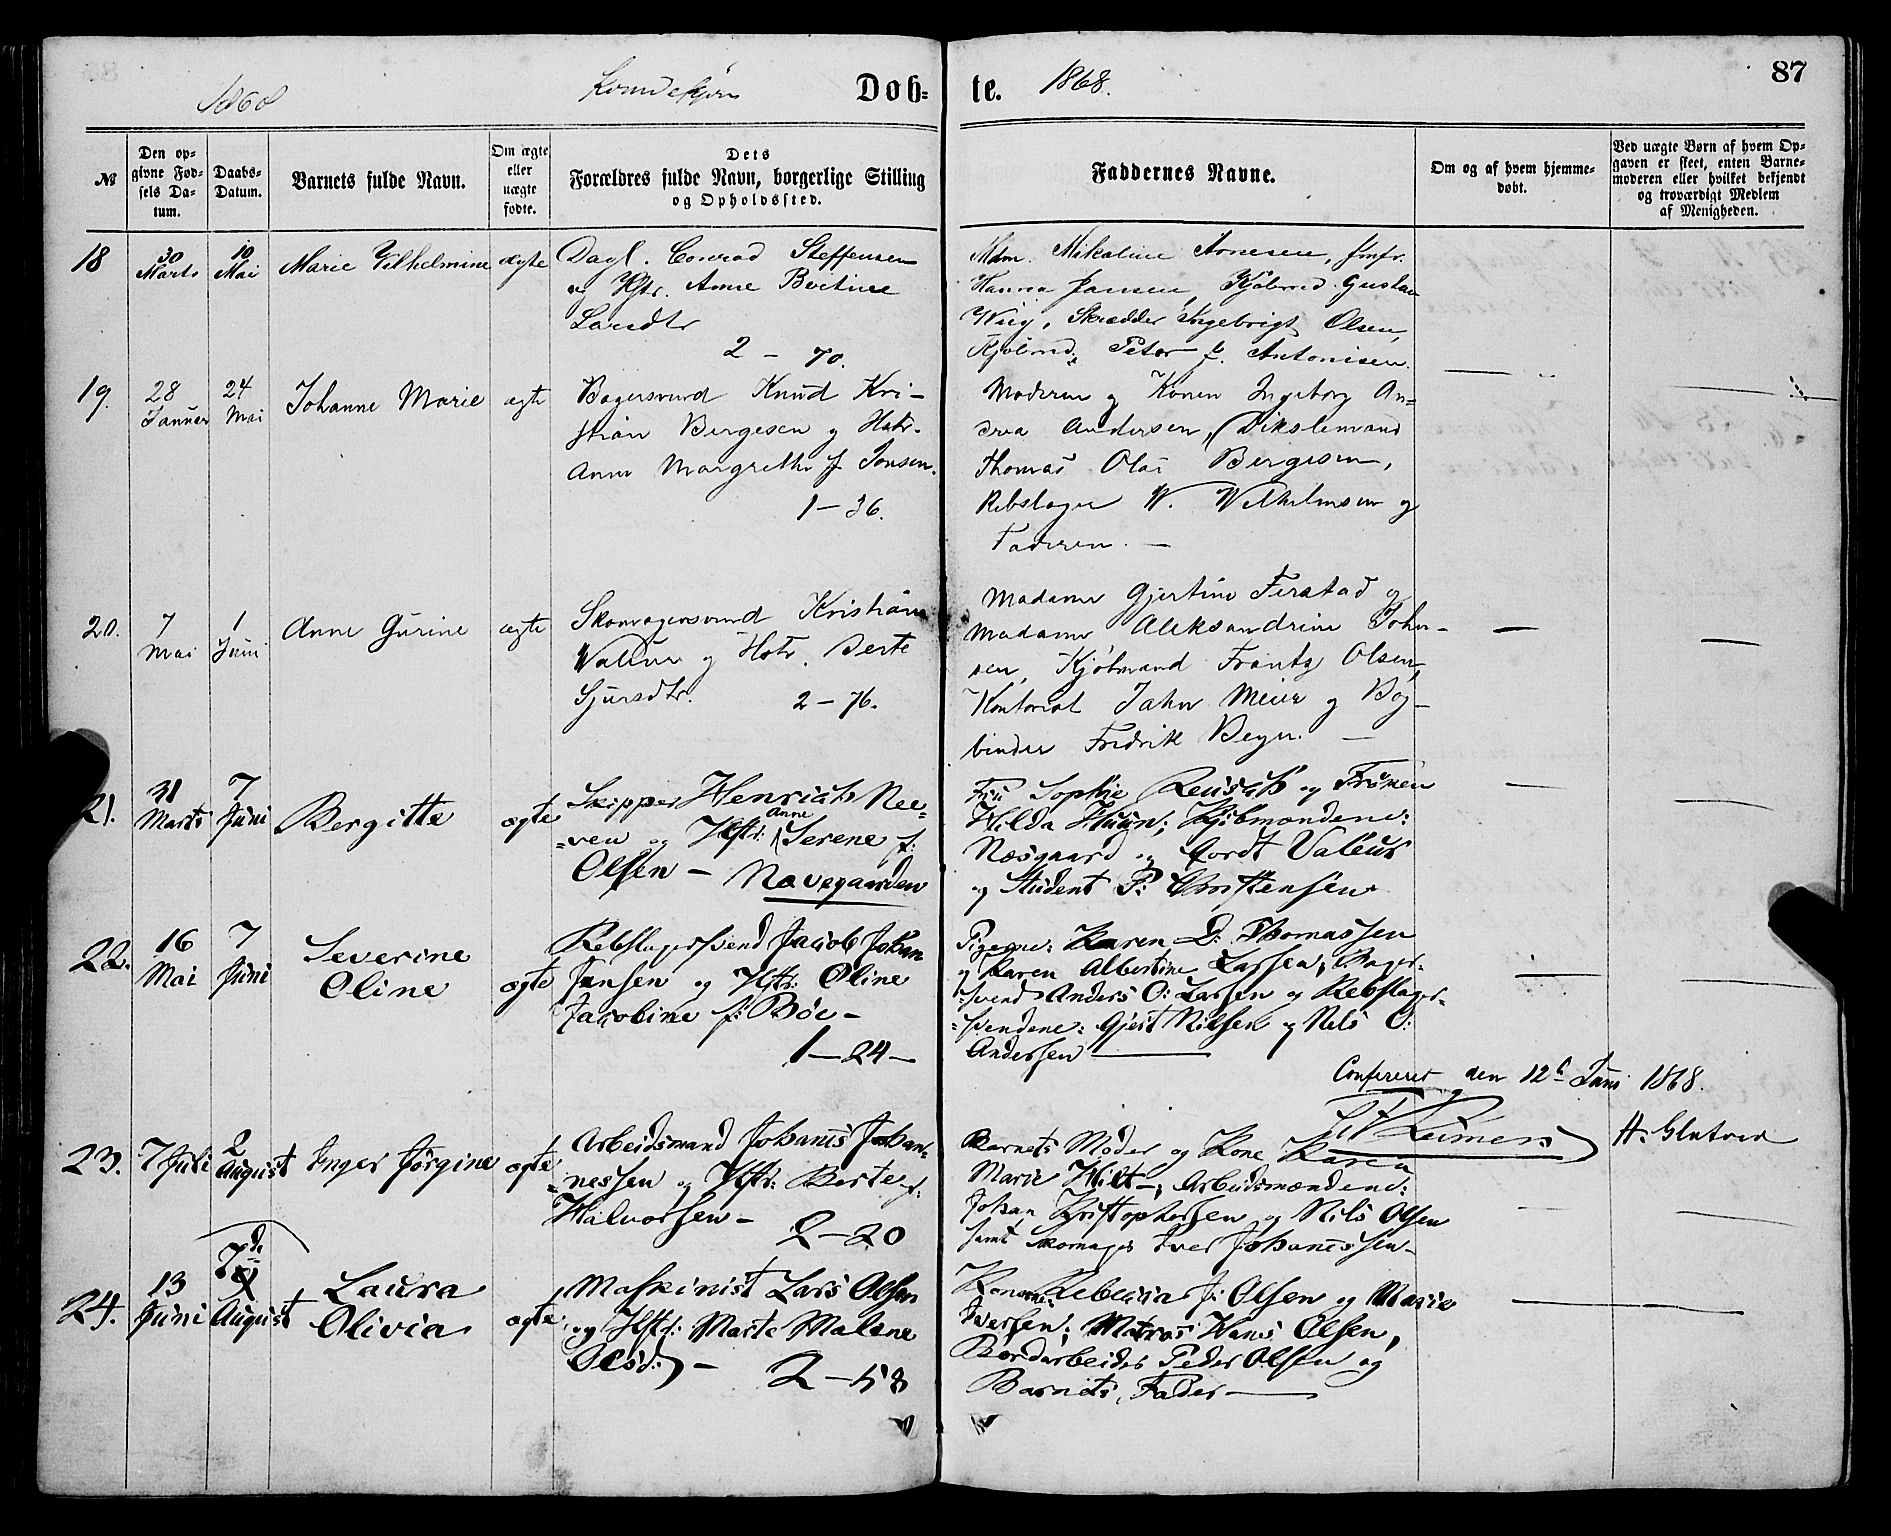 1868 Kvindekjøn Døb= te. 1868. 87
№
Den op-
givne Fød-
sels Da-
tum.
Daabs-
Datum.
Barnets fulde Navn.
Om ægte
eller
uægte
fødte.
Dets
Forældres fulde Navn, borgerlige Stilling
og Opholdssted.
Faddernes Navne.
Om og af hvem hjemme-
døbt.
Ved uægte Børn af hvem Op-
gaven er skeet, enten Barne-
moderen eller hvilket bekjendt
og troværdigt Medlem
af Menigheden.
18
30
Marts
10
Mai
Marie Vilhelmine
ægte
Dagl. Conrad Steffensen
og Hstr. Anne Bertine
Larsdtr
2 – 70.
Mdm. Mikaline Arnesen, Jmfr.
Hanna Jansen, Kjöbmd. Gustav
Wiig, Skrædder Ingebrigt Olsen,
Kjöbmd. Peter J. Antonisen.
19.
28
Januar
24
Mai
Johanne Marie
ægte
Bagersvend Knud Kri-
stian Bergesen og Hstr.
Anne Margrethe f Jonsen.
1 – 36.
Moderen og Konen Ingeborg An=
drea Andersen, Dikslemand
Thomas Olai Bergesen,
Rebslager W. Wilhelmsen og
Faderen. —
20.
7
Mai
1
Juni
Anne Gurine
ægte
Skomagersvend Kristian
Valeur og Hstr. Berte
Sjursdtr.
2 – 76.
Madame Gjertine Ferstad og
Madame Aleksandrine John-
sen, Kjöbmand Frantz Olsen,
Kontorist Jahn Meier og Bog-
binder Fredrik Beyer. —
21.
31
Marts
7
Juni
Bergitte
ægte
Skipper Henrich Nee-
=ven og Hstr: Anne Serene f:
Olsen – Navegaarden
Fru Sophie Reusch og Frøken
Hilda Huun; Kjøbmændene:
Næsgaard og Cordt Valeur
og Student P: Christensen
22.
16
Mai
7
Juni
Severine
Oline
ægte
Rebslagersvend Jacob Johan
Jensen og Hstr: Oline
Jacobine f: Böe –
1 – 24 –
Pigerne: Karen D: Thomassen
og Karen Albertine Larsen; Bager-
svend Anders O: Larsen og Rebslager-
=svendene: Gjert Nilsen og Nils O:
Andersen
Confereret den 12te Juni 1868.
Reimers H. Glatved
23.
7 Juli
2
August
Inger Jørgine
ægte
Arbeidsmand Johannes Johan-
=nessen og Hstr: Berte f:
Halvorsen –
2 – 20
Barnets Moder og Kone Karen
Marie Hilt –; Arbeidsmændene:
Johan Kristophersen og Nils Olsen
samt Skomager Iver Johannessen –
24.
13
Juni
7de
August
Laura
Olivia
ægte
Maskinist Lars Olsen
og Hstr: Marte Malene
Olsd: –
2 – 58
Konerne: Rebecca f: Olsen og Marie
Iversen; Matros Hans Olsen,
Bordarbeider Peder Olsen og
Barnets Fader